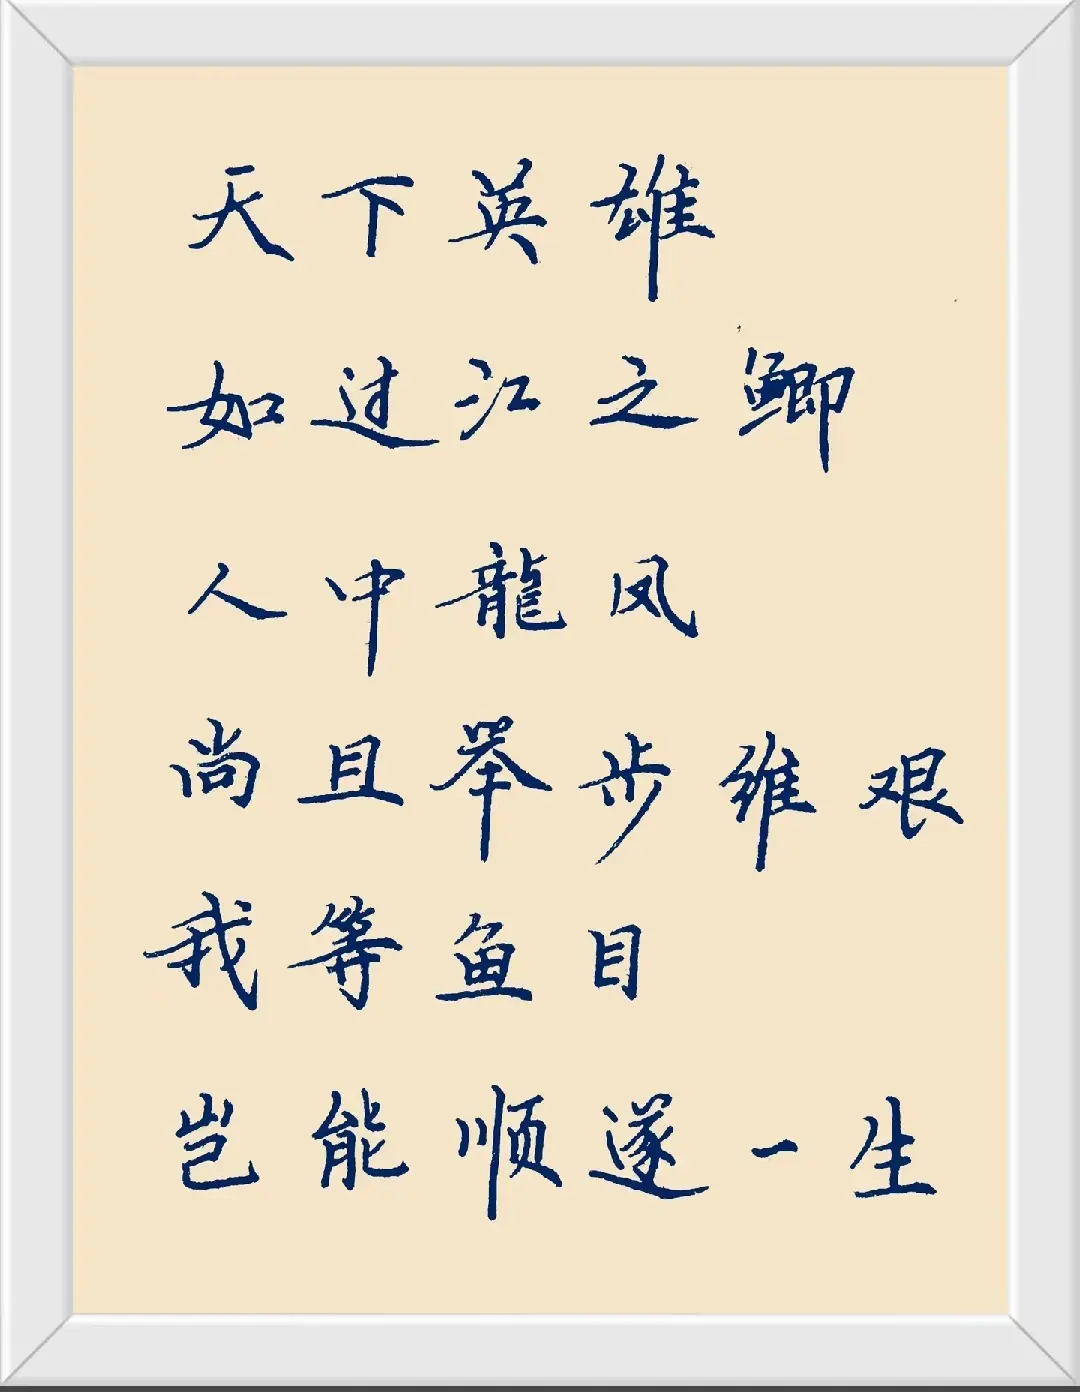 天下英雄
如过江之鲫
人中龍凤
尚且举步维艰
我等鱼目
岂能顺遂一生